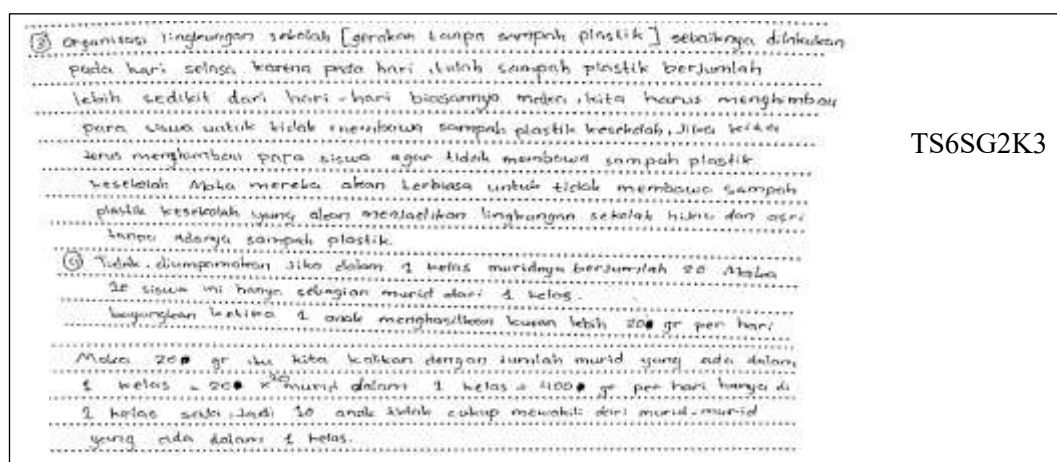 ③ Organisasi lingkungan sekolah [gerakan tanpa sampah plastik] sebaiknya dilakukan
pada hari selasa karena pada hari itulah sampah plastik berjumlah
lebih sedikit dari hari-hari biasannya maka kita harus menghimbau
para siswa untuk tidak membawa sampah plastik kesekolah, Jika
terus menghimbau para siswa agar tidak membawa sampah plastik
kesekolah Maka mereka akan terbiasa untuk tidak membawa sampah
plastik kesekolah yang akan menjadikan lingkungan sekolah hijau dan asri
tanpa adanya sampah plastik.
Tidak. diumpamakan Jika dalam 1 kelas muridnya berjumlah 20 Maka
10 siswa ini hanya sebagian murid dari 1 kelas.
bayangkan ketika 1 anak menghasilkan kurang lebih 200 gr per hari
Maka 200 gr itu kita kalikan dengan jumlah murid yang ada dalam
1 kelas = 200 × 20 murid dalam 1 kelas = 4000 gr per hari hanya di
1 kelas saja Jadi 10 anak tidak cukup mewakili dari murid-murid
yang ada dalam 1 kelas.
TS6SG2K3